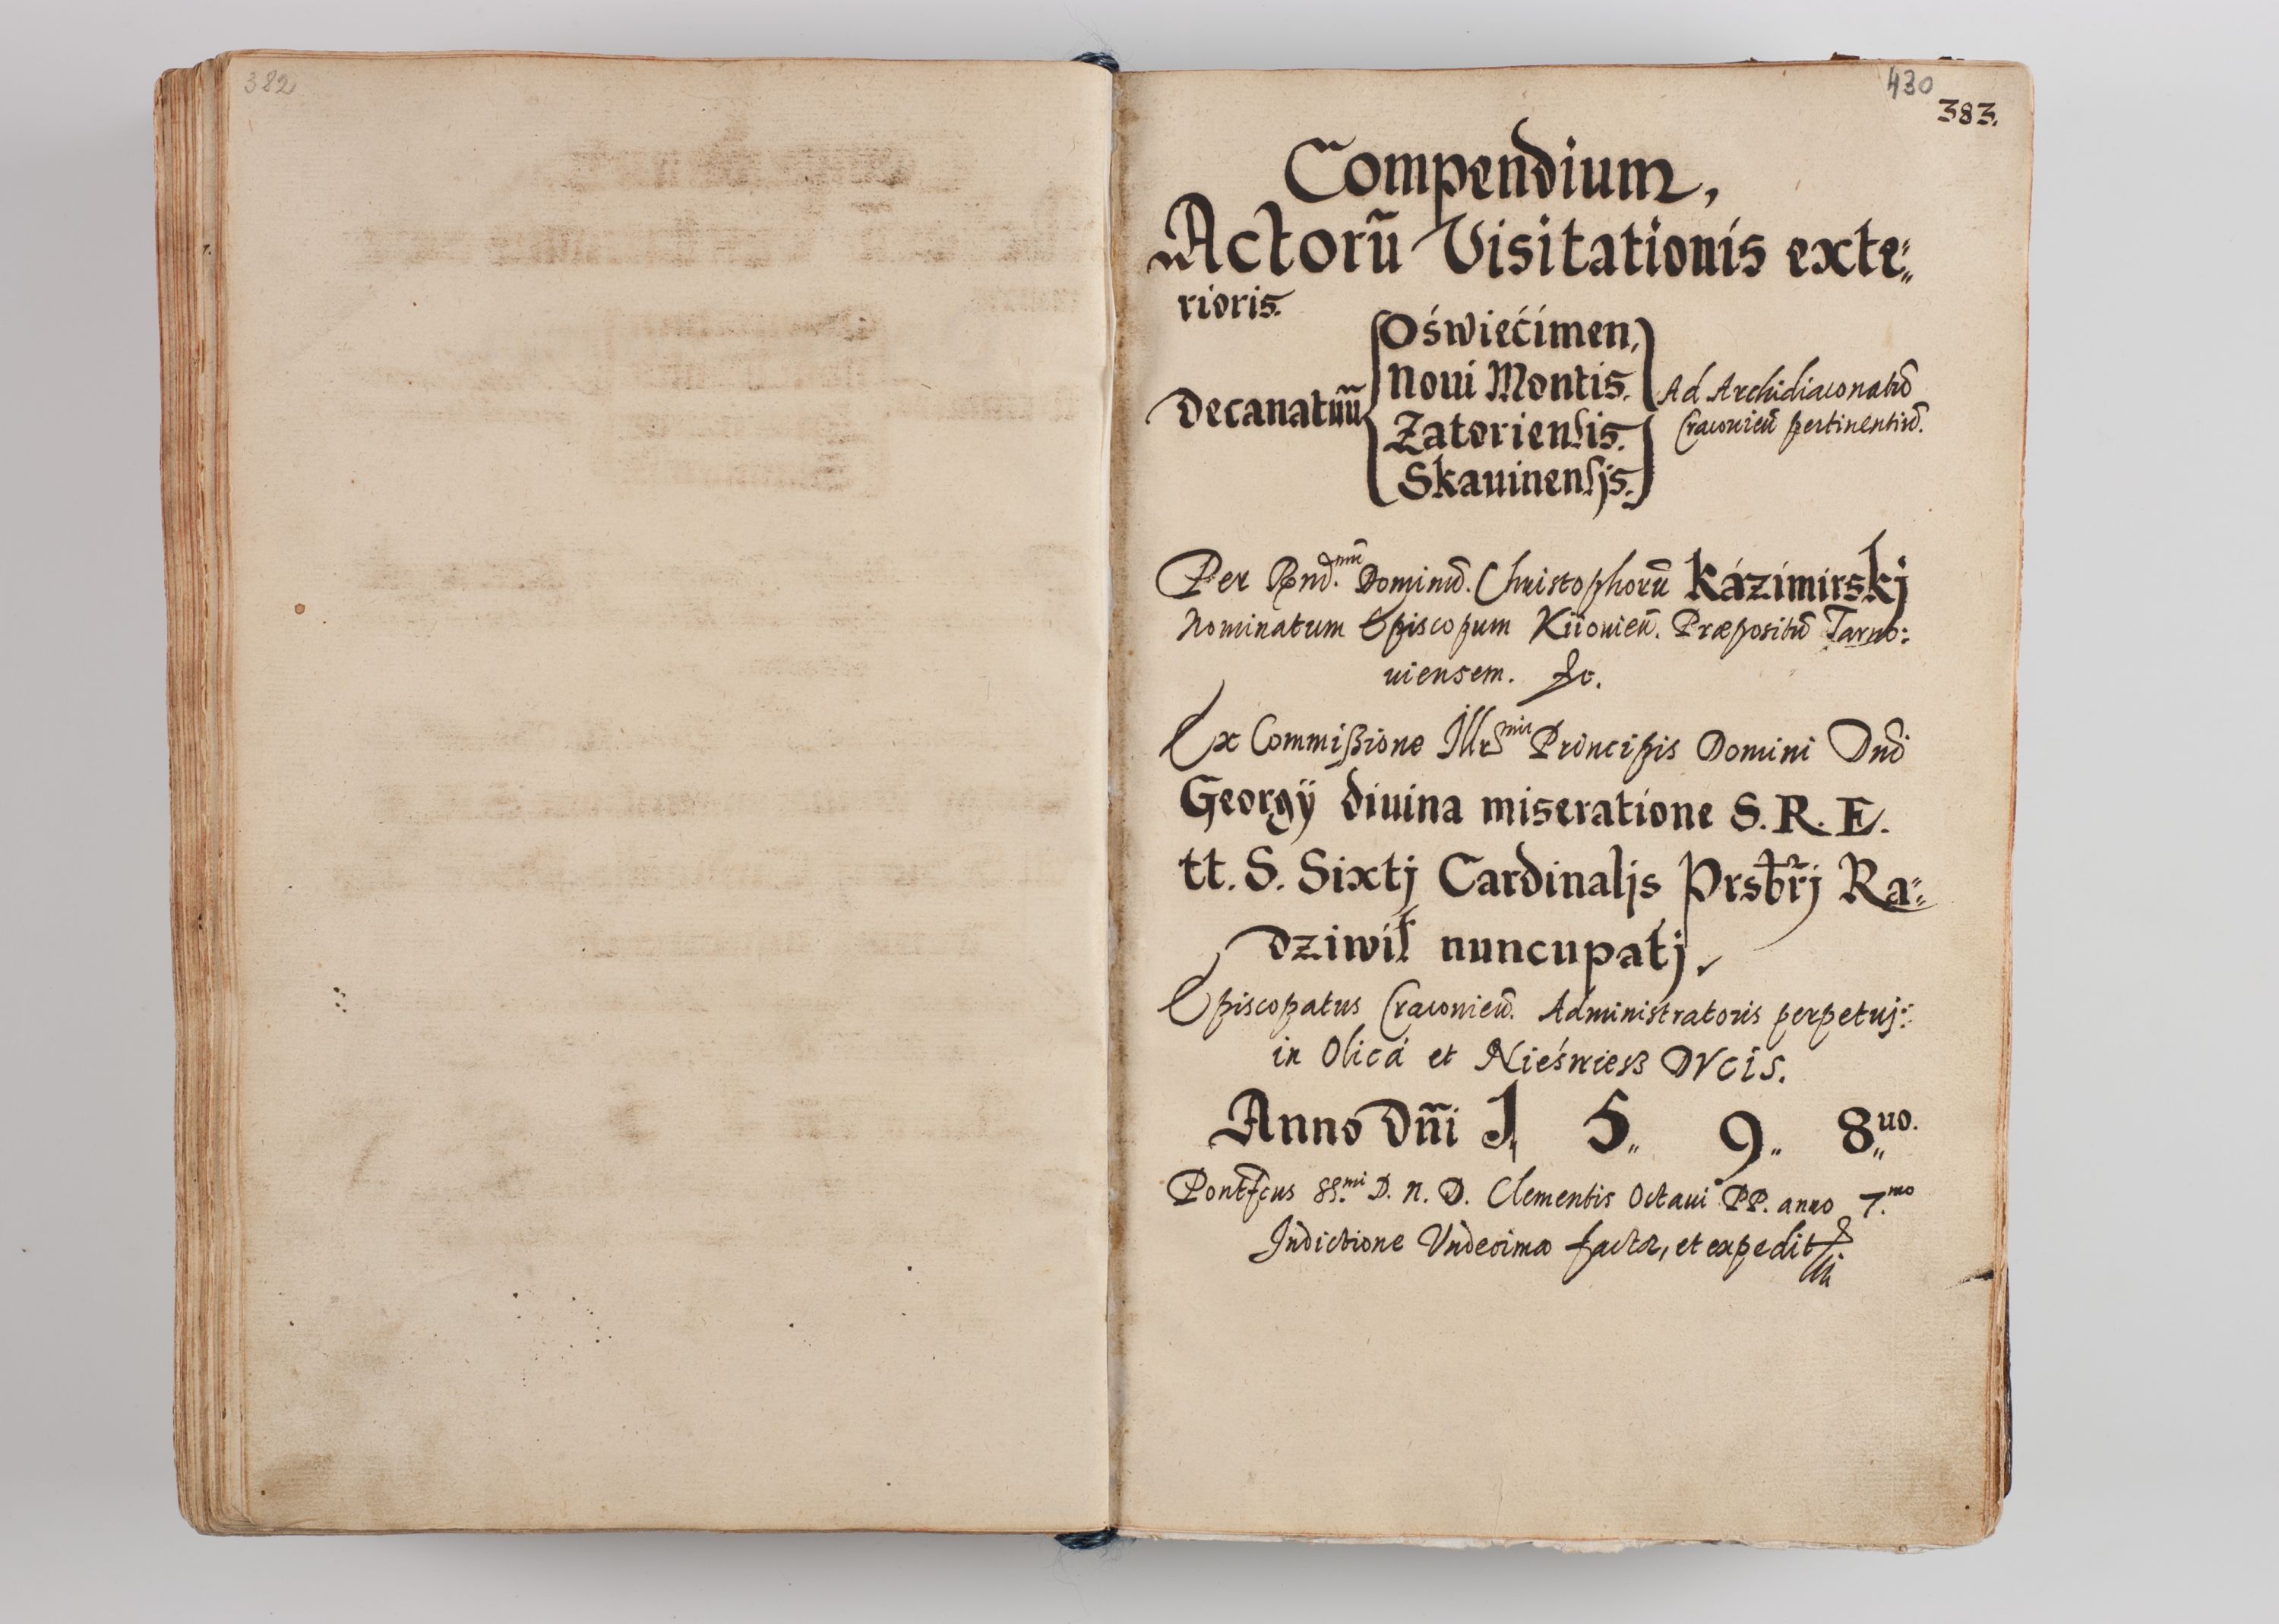 382
430
383.
Compendium,
Actorũ Visitationis exte„
rioris.
Decanatuũ
Oświećimen,
Noui Montis.
Zatoriensis.
Skauinensjs.
Ad Archidiaconatũ
Cracouień pertinentiũ.
Per Rnd.mũ Dominũ. Christophorũ Kázimirskj
Nominatum Episcopum Kiiouień. Præpositũ Tarno:
uiensem. &c.
Ex Commißione Illrsmi Principis Domini Dnĩ
Georgÿ diuina miseratione S. R. E.
tt. S. Sixtj Cardinaljs Prsb̃rj Ra„
dziwił nuncupatj.
Episcopatus Cracouień. Administratoris perpetuj:
in Olica et Nieśwież DVCIS.
Anno Dñi 1„ 5„ 9„ 8„uo.
Pontfcus SS.mi D. N. D. Clementis Octaui PP. anno 7.mo
Indictione Vndecima facta, et expedit